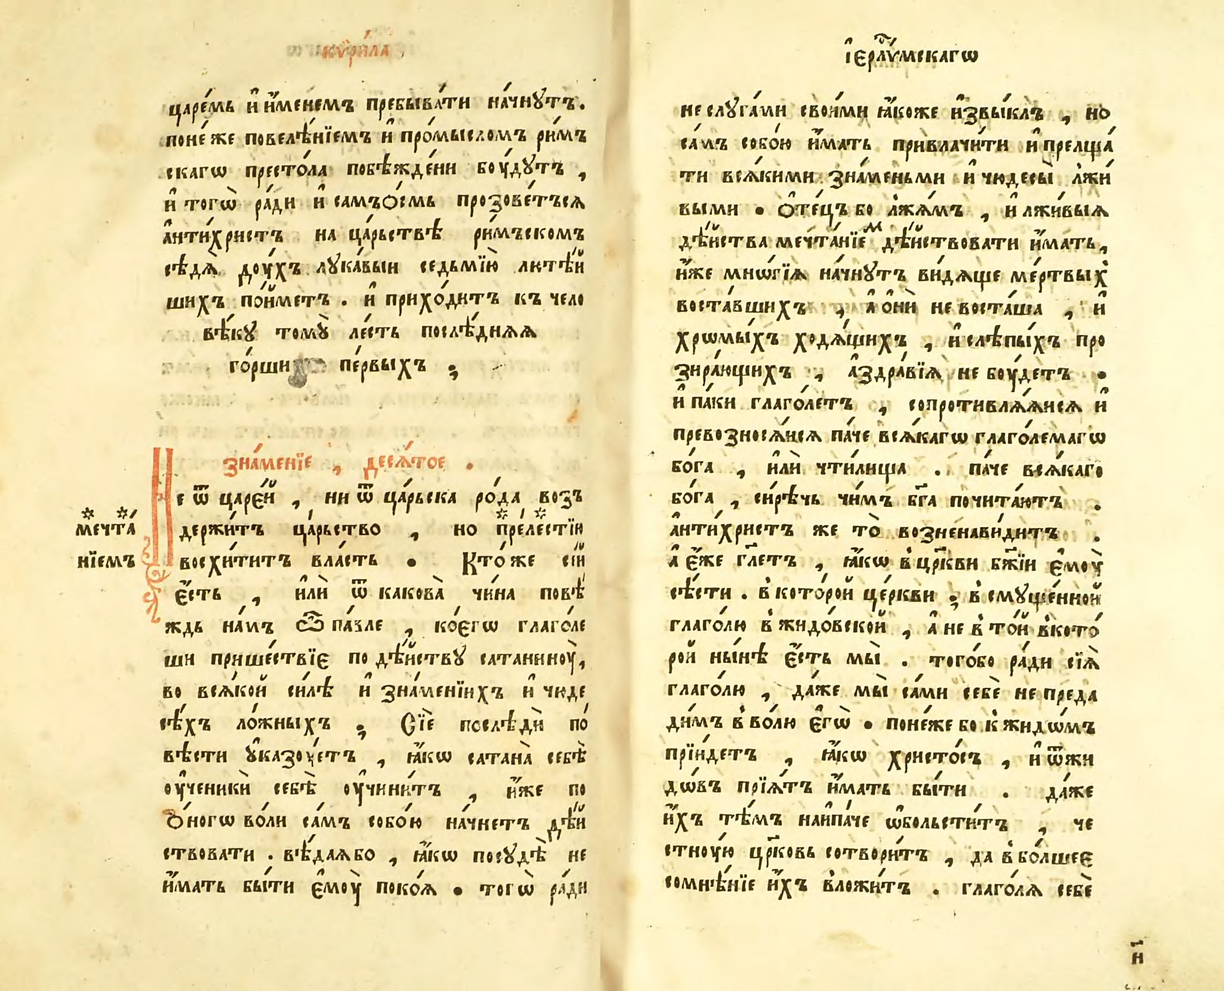 КѴРИ́ЛА
царе́мь и҆ и҆́менемъ пребыва́ти на́чнутъ.
поне́же повелѣ́нїемъ и҆ про́мысломъ ри́мъ
скагѡ престо́ла побѣжде́ни бꙋ́дутъ ,
и҆ тогѡ̀ ра́ди и҆ самъѻ҆смь прозове́тъсѧ
а҆нти́христъ на ца́рьствѣ ри́мъскомъ
сѣдѧ̀ дꙋ́хъ лука́выи седьмїю лютѣ́й
шихъ по́йметъ . и҆ прихо́дитъ къ чело
вѣ́ку томꙋ̀ ле́сть послѣ́днѧѧ
го́рши пе́рвыхъ ;
зна́менїе , десѧ́тое .
Не ѿ царе́й , ни ѿ ца́рьска ро́да возъ
держи́тъ ца́рьство , но пре́лестїи
мечта́
нїемъ
восхи́титъ вла́сть . Кто́же сїй
є҆́сть , и҆лѝ ѿ какова̀ чи́на повѣ́
ждь на́мъ ѽ па́ѵле , ко́єгѡ глаго́ле
ши прише́ствїє по дѣ́йству сатанинꙋ̀,
во всѧ́кой си́лѣ и҆ зна́менїихъ и҆ чюде
сѣ́хъ ло́жныхъ ; Сїѐ послѣдѝ по́
вѣсти ᲂу҆казꙋ́етъ , ꙗ҆́кѡ сатана̀ себѣ̀
ᲂу҆ченикѝ себѣ̀ ᲂу҆чини́тъ , и҆́же по
ѻ҆́ногѡ во́ли са́мъ собо́ю на́чнетъ дѣ́й
ствовати . вѣ́даѧбо , ꙗ҆́кѡ по сꙋдѣ̀ не
и҆́мать бы́ти є҆мꙋ̀ поко́ѧ . тогѡ̀ ра́ди
І҆ЕРⷭ҇ЛИ́МСКАГѠ
не слуга́ми свои́ми ꙗ҆́коже и҆звы́клъ , но̀
са́мъ собо́ю и҆́мать привлачи́ти и҆ прелща́
ти всѧ́кими зна́меньми и҆ чюдесы̀ лжи́
выми . ѻ҆те́цъ бо лжѧ́мъ , и҆ лжи́выѧ
дѣ́йства мечта́нїємъ дѣ́йствовати и҆́мать,
и҆́же мнѡ́гїѧ на́чнутъ ви́дѧще ме́ртвыхъ
воста́вшихъ , а҆ ѻ҆нѝ не воста́ша , и҆
хрѡмы́хъ ходѧ́щихъ , и҆ слѣпы́хъ про
зира́ющихъ , а҆ здра́вїѧ не бꙋ́детъ .
и҆ па́ки глаго́летъ , сопротивлѧ́ѧисѧ и҆
превозносѧ́исѧ па́че всѧ́кагѡ глаго́лемагѡ
бо́га , и҆лѝ чти́лища . па́че всѧ́каго
бо́га , си́рѣчь чи́мъ бг҃а почита́ютъ .
а҆нти́христъ же то̀ возненави́дитъ .
а҆ є҆́же гл҃етъ , ꙗ҆́кѡ в цр҃кви бж҃їи є҆мꙋ̀
сѣ́сти . в кото́рой це́ркви ; в смуще́нной
глаго́лю в жидо́вской , а҆ не в то́й в кото́
рой ны́нѣ є҆́сть мы̀ . тогобо ра́ди сїѧ̀
глаго́лю , да́же мы̀ са́ми себѐ не преда
ди́мъ в во́лю є҆гѡ̀ . поне́же бо к жидѡ́мъ
прїи́детъ , ꙗ҆́кѡ христо́съ , и҆ ѿ жи
дѡ́въ прїѧ́тъ и҆́мать бы́ти . да́же
и҆́хъ тѣ́мъ наипа́че ѡ҆больсти́тъ , че
стнꙋ́ю цр҃ковь сотвори́тъ , да в бо́лшеє
сомнѣ́нїе и҆́хъ вло́житъ . глаго́лѧ себѐ
и҃